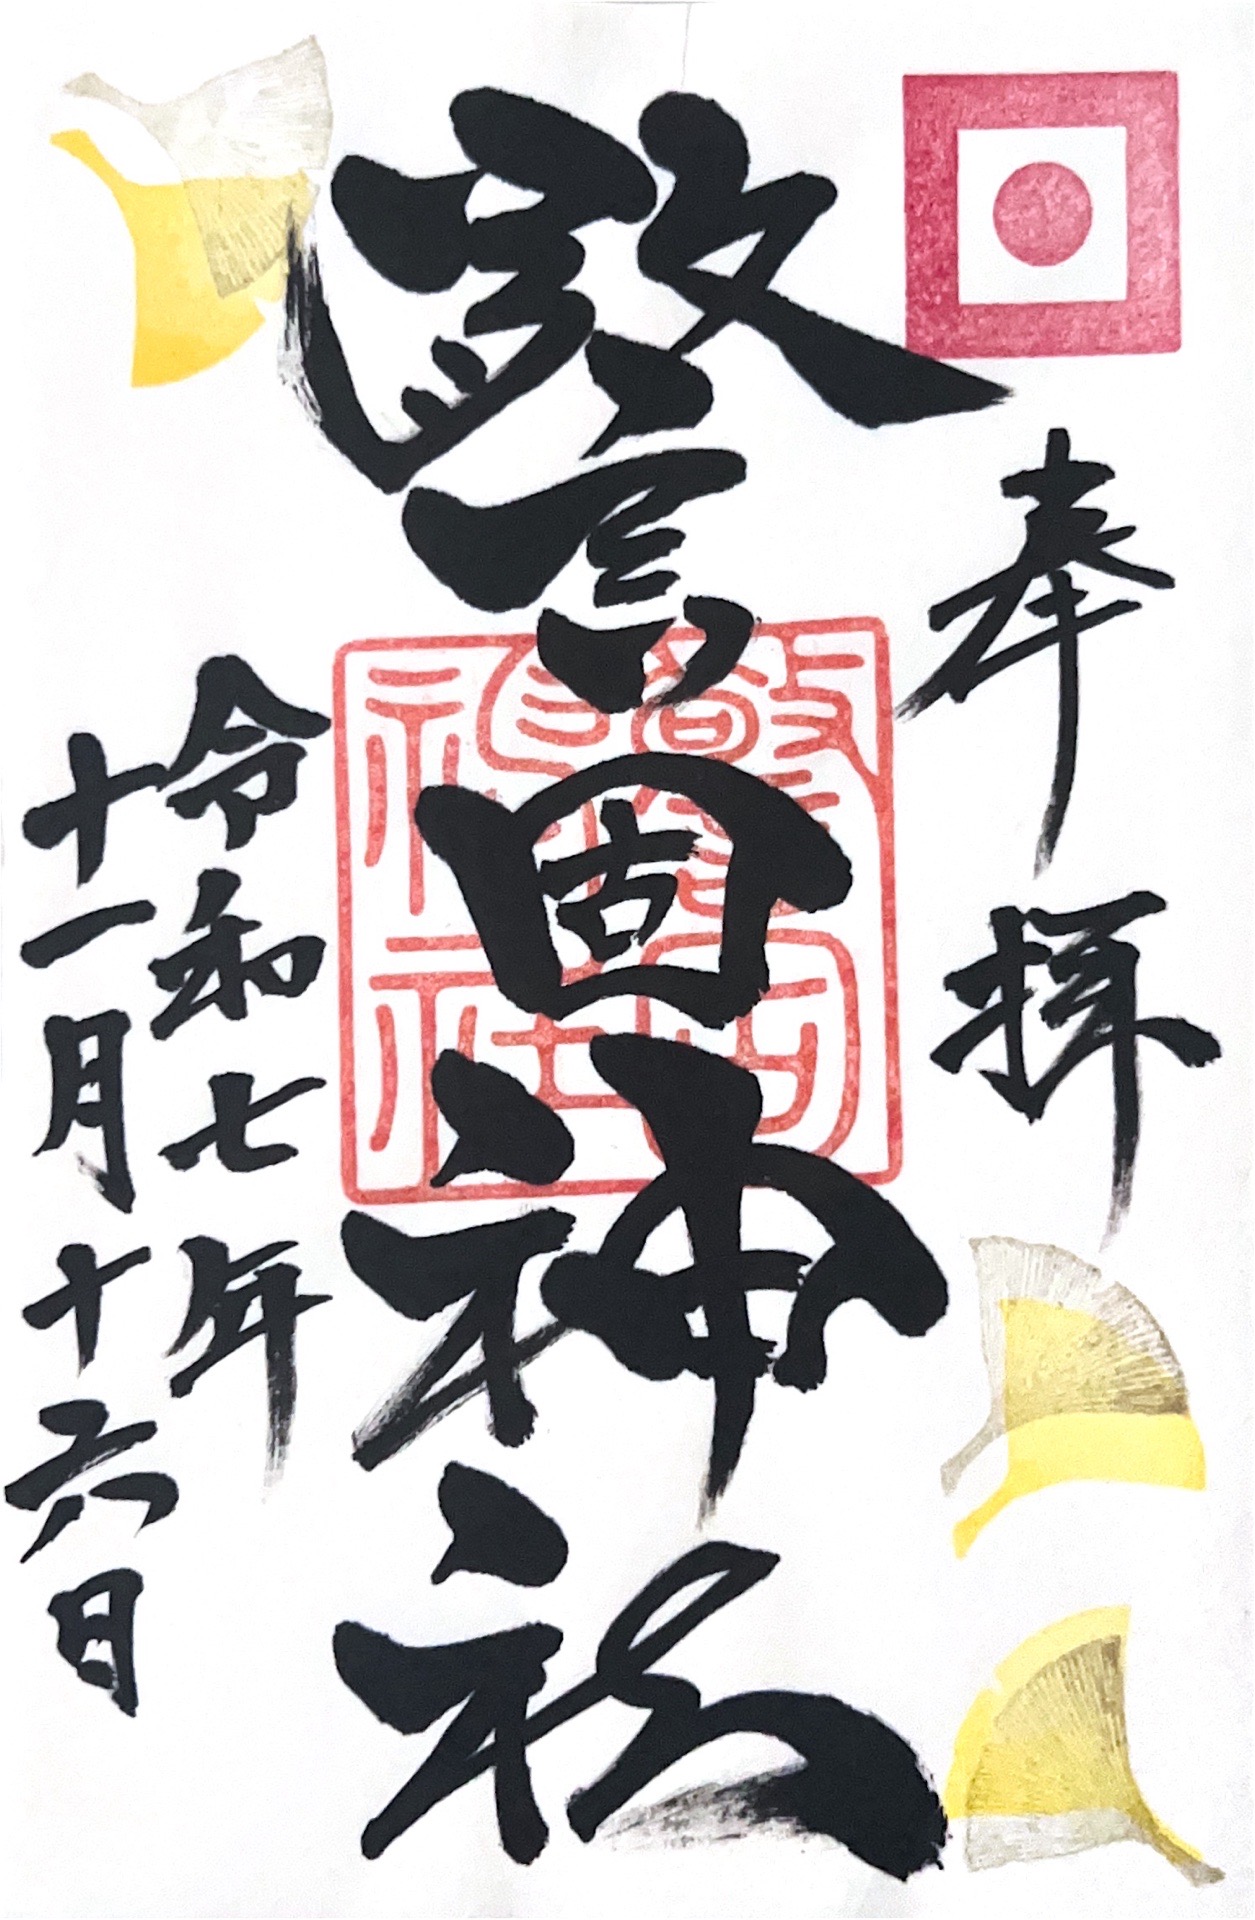 奉拝
警固神社
警固神社
令和七年
十一月十六日